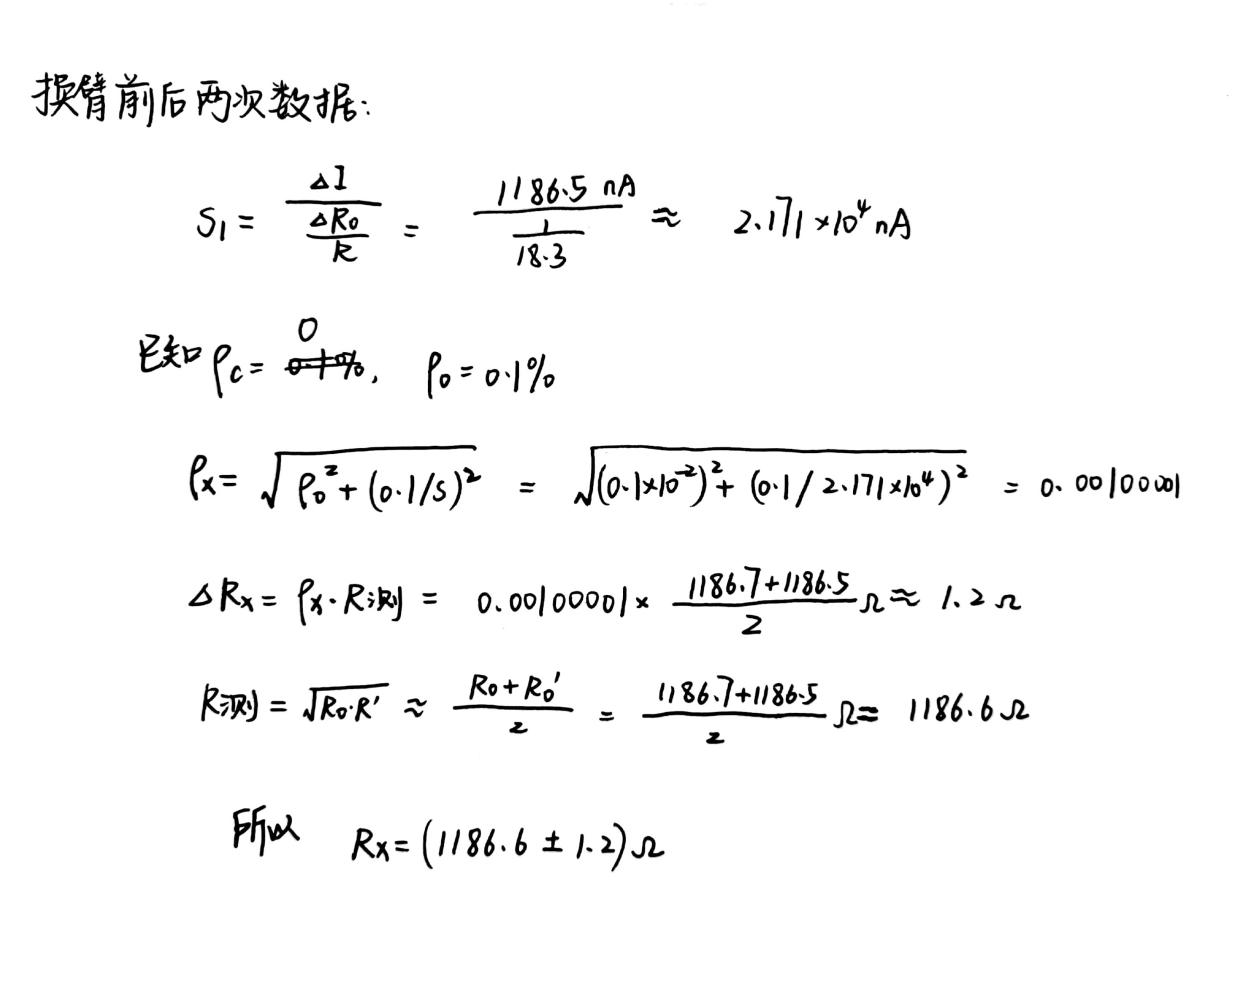 换臂前后两次数据:
S₁ = ΔI / (ΔR₀ / R) = 1186.5 nA / (1 / 18.3) ≈ 2.171×10⁴ nA
已知 ρc = 0, ρ₀ = 0.1%
ρx = √(ρ₀² + (0.1/S)²) = √((0.1×10⁻²)² + (0.1 / 2.171×10⁴)²) = 0.00100001
ΔRx = ρx · R测 = 0.00100001 × (1186.7+1186.5) / 2 Ω ≈ 1.2 Ω
R测 = √(R₀·R') ≈ (R₀+R₀') / 2 = (1186.7+1186.5) / 2 Ω = 1186.6 Ω
所以 Rx = (1186.6 ± 1.2) Ω